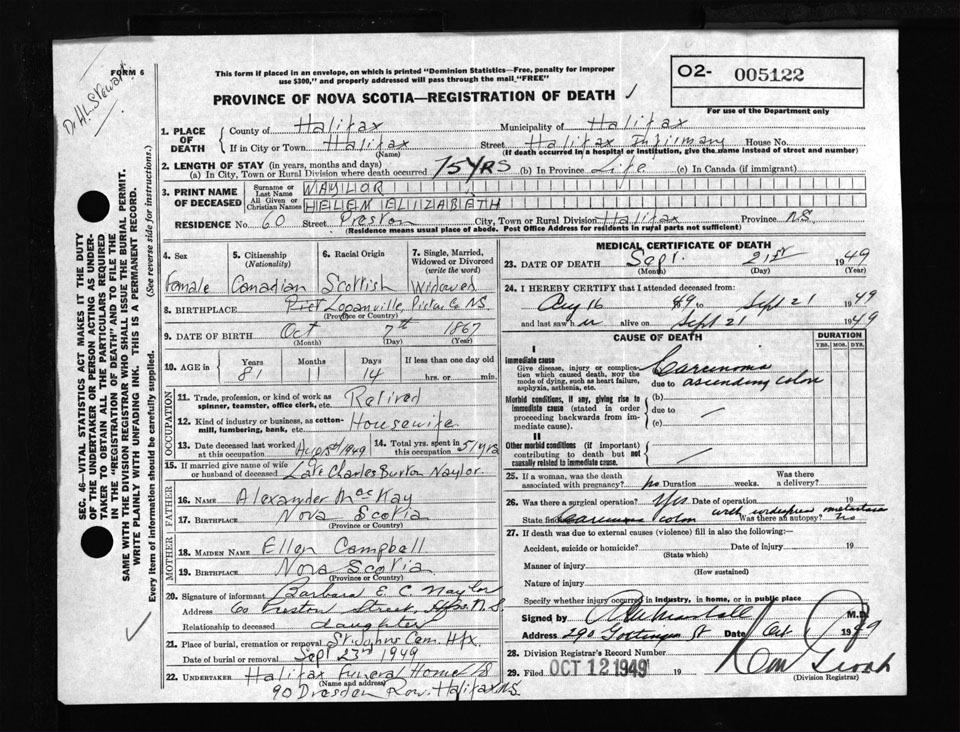 Dr H.L. Stewart
FORM 6
This form if placed in an envelope, on which is printed "Dominion Statistics—Free, penalty for improper
use $300," and properly addressed will pass through the mail "FREE"
O2- 005122
For use of the Department only
PROVINCE OF NOVA SCOTIA—REGISTRATION OF DEATH
SEC. 46—VITAL STATISTICS ACT MAKES IT THE DUTY
OF THE UNDERTAKER OR PERSON ACTING AS UNDER-
TAKER TO OBTAIN ALL THE PARTICULARS REQUIRED
IN THE "REGISTRATION OF DEATH" AND TO FILE THE
SAME WITH THE DIVISION REGISTRAR WHO SHALL ISSUE THE BURIAL PERMIT.
WRITE PLAINLY WITH UNFADING INK. THIS IS A PERMANENT RECORD.
Every item of information should be carefully supplied. (See reverse side for instructions.)
1. PLACE OF DEATH
County of Halifax Municipality of Halifax
If in City or Town Halifax Street Halifax Infirmary House No.
(Name) (If death occurred in a hospital or institution, give the name instead of street and number)
2. LENGTH OF STAY (in years, months and days)
(a) In City, Town or Rural Division where death occurred 75 YRS (b) In Province Life (c) In Canada (if immigrant)
3. PRINT NAME OF DECEASED
Surname or Last Name NAYLOR
All Given or Christian Names HELEN ELIZABETH
RESIDENCE No. 60 Street Preston City, Town or Rural Division Halifax Province N.S.
(Residence means usual place of abode. Post Office Address for residents in rural parts not sufficient)
4. Sex 5. Citizenship (Nationality) 6. Racial Origin 7. Single, Married, Widowed or Divorced (write the word)
Female Canadian Scottish Widowed
8. BIRTHPLACE Loganville, Pictou Co N.S.
(Province or Country)
9. DATE OF BIRTH Oct 7th 1867
(Month) (Day) (Year)
10. AGE in Years Months Days If less than one day old
81 11 14 hrs. or min.
OCCUPATION
11. Trade, profession, or kind of work as spinner, teamster, office clerk, etc. Retired
12. Kind of industry or business, as cotton-mill, lumbering, bank, etc. Housewife
13. Date deceased last worked at this occupation 1949 14. Total yrs. spent in this occupation 51 yrs
15. If married give name of wife or husband of deceased Late Charles Burton Naylor.
FATHER
16. NAME Alexander MacKay
17. BIRTHPLACE Nova Scotia
(Province or Country)
MOTHER
18. MAIDEN NAME Ellen Campbell
19. BIRTHPLACE Nova Scotia
(Province or Country)
20. Signature of informant Barbara E. C. Naylor
Address 60 Preston Street, Hfx. N.S.
Relationship to deceased daughter
21. Place of burial, cremation or removal St. Johns Cem. Hfx
Date of burial or removal Sept 23rd 1949
22. UNDERTAKER Halifax Funeral Home
(Name and address)
90 Dresden Row. Halifax N.S.
MEDICAL CERTIFICATE OF DEATH
23. DATE OF DEATH Sept. 21st 1949
(Month) (Day) (Year)
24. I HEREBY CERTIFY that I attended deceased from:
Aug 16 1949 to Sept 21 1949
and last saw her alive on Sept 21 1949
CAUSE OF DEATH DURATION
YRS. MOS. DYS.
I
Immediate cause
Give disease, injury or complication which caused death, not the mode of dying, such as heart failure, asphyxia, asthenia, etc.
Carcinoma
due to ascending colon
Morbid conditions, if any, giving rise to immediate cause (stated in order proceeding backwards from immediate cause).
(b)
due to
(c)
II
Other morbid conditions (if important) contributing to death but not causally related to immediate cause.
25. If a woman, was the death associated with pregnancy? no Duration weeks. Was there a delivery?
26. Was there a surgical operation? Yes Date of operation 19
State findings Carcinoma colon with widespread metastasis Was there an autopsy? No
27. If death was due to external causes (violence) fill in also the following:
Accident, suicide or homicide? Date of injury 19
(State which)
Manner of injury
(How sustained)
Nature of injury
Specify whether injury occurred in industry, in home, or in public place
Signed by Marshall M.D.
Address 290 Gottingen St Date Oct 1949
28. Division Registrar's Record Number
29. Filed OCT 12 1949
(Division Registrar)